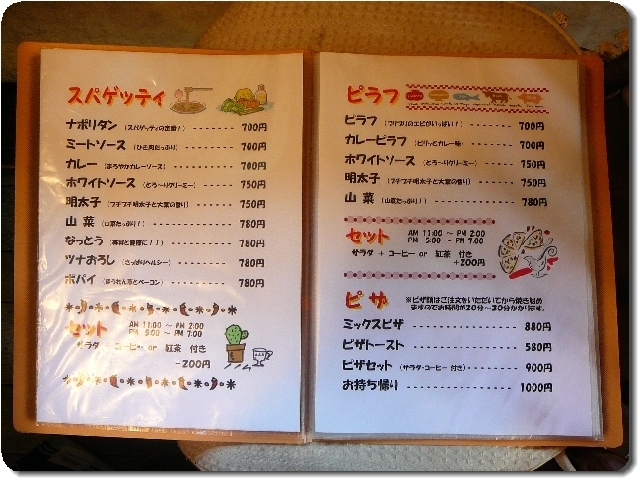 スパゲッティ
ナポリタン (スパゲッティの定番!) 700円
ミートソース (ひき肉たっぷり) 700円
カレー (まろやかカレーソース) 700円
ホワイトソース (とろ〜りクリーミー) 750円
明太子 (プチプチ明太子と大葉の香り) 750円
山菜 (山菜たっぷり!) 780円
なっとう 780円
ツナおろし (さっぱりヘルシー) 780円
ポパイ (ほうれん草とベーコン) 780円
セット AM 11:00 〜 PM 2:00
PM 5:00 - PM 7:00
サラダ + コーヒー or 紅茶 付き
200円
ピラフ
ピラフ (プリプリのエビがいっぱい!) 700円
カレーピラフ (ピリッとカレー味) 700円
ホワイトソース (とろ〜りクリーミー) 750円
明太子 (プチプチ明太子と大葉の香り) 750円
山菜 (山菜たっぷり!) 780円
セット AM 11:00 〜 PM 2:00
PM 5:00 - PM 7:00
サラダ + コーヒー or 紅茶 付き
+200円
ピザ ※ピザ類はご注文をいただいてから焼き始め
ますのでお時間が20分〜30分かかります。
ミックスピザ 880円
ピザトースト 580円
ピザセット (サラダ・コーヒー 付き) 900円
お持ち帰り 1000円